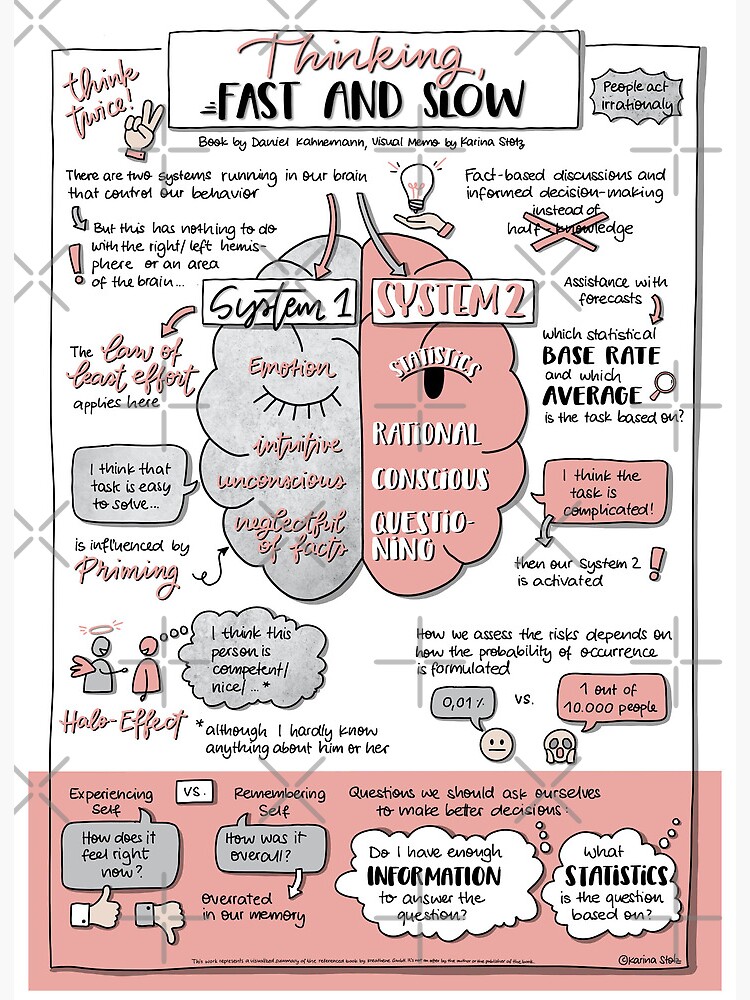 Thinking,
FAST AND SLOW
think
twice!
People act
irrationaly
Book by Daniel Kahnemann, Visual Memo by Karina Stolz
There are two systems running in our brain
that control our behavior
But this has nothing to do
with the right/left hemis-
phere or an area
of the brain...
Fact-based discussions and
informed decision-making
instead of
half-knowledge
System 1
SYSTEM 2
Assistance with
forecasts
The law of
least effort
applies here
Emotion
intuitive
unconscious
neglectful
of facts
STATISTICS
RATIONAL
CONSCIOUS
QUESTIO-
NING
which statistical
BASE RATE
and which
AVERAGE
is the task based on?
I think that
task is easy
to solve...
is influenced by
Priming
I think the
task is
complicated!
then our System 2
is activated
I think this
person is
competent/
nice/ ... *
Halo-Effect
*although I hardly know
anything about him or her
How we assess the risks depends on
how the probability of occurrence
is formulated
0,01%
vs.
1 out of
10.000 people
Experiencing
Self
vs.
Remembering
Self
How does it
feel right
now?
How was it
overall?
overrated
in our memory
Questions we should ask ourselves
to make better decisions:
Do I have enough
INFORMATION
to answer the
question?
What
STATISTICS
is the question
based on?
This work represents a visualized summary of the referenced book by kreathene GmbH. It's not an offer by the author or the publisher of the book.
©Karina Stolz